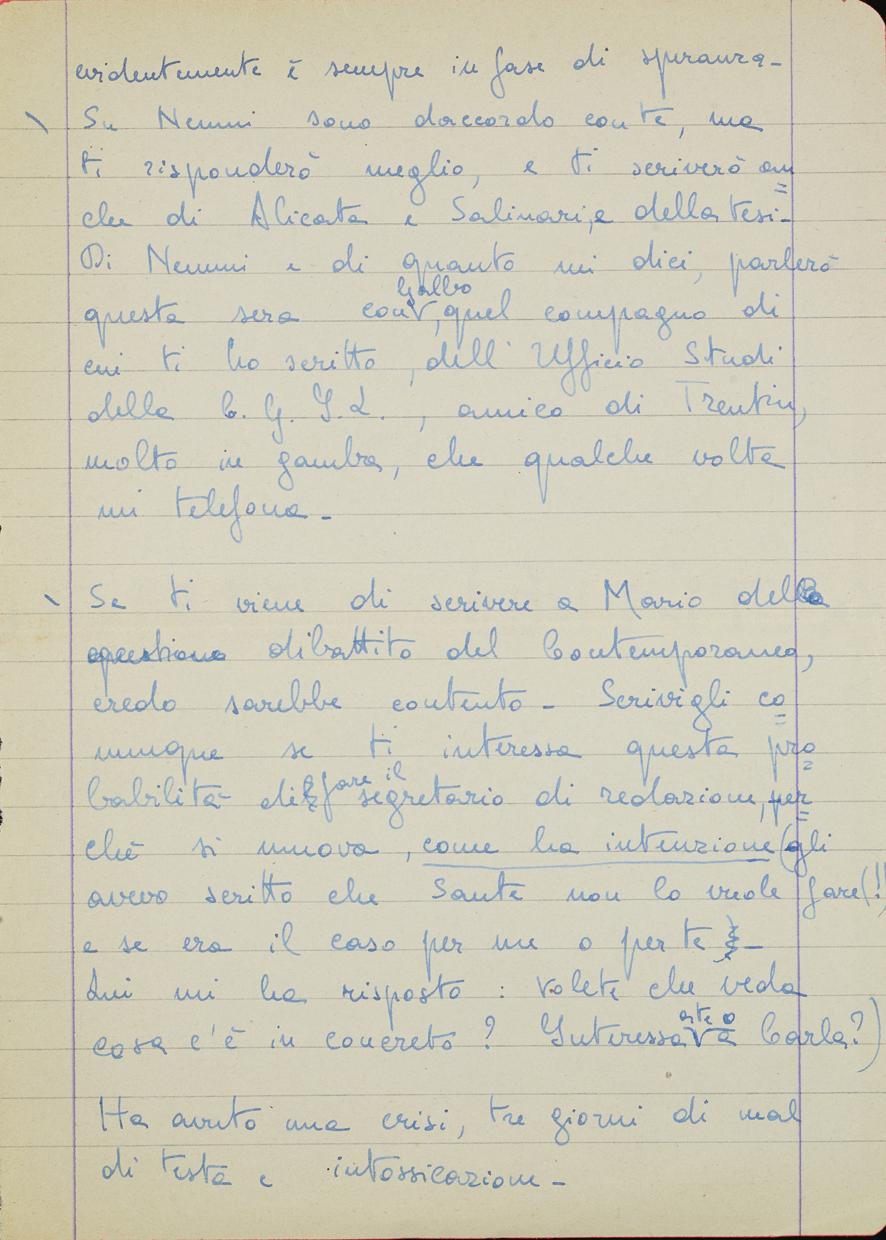 evidentemente è sempre in fase di speranza -
Su Nenni sono daccordo con te, ma
ti risponderò meglio, e ti scriverò an
che di Alicata e Salinari, e della tesi -
Di Nenni e di quanto mi dici, parlerò
questa sera con Galbo, quel compagno di
cui ti ho scritto, dell' Ufficio Studi
della C. G. I. L., amico di Trentin,
molto in gamba, che qualche volta
mi telefona -
Se ti viene di scrivere a Mario della
questione dibattito del Contemporaneo,
credo sarebbe contento - Scrivigli co
munque se ti interessa questa pro
babilità di fare il segretario di redazione, per
chè si muova, come ha intenzione (gli
avevo scritto che Sante non lo vuole fare (!)
e se era il caso per me o per te -
Lui mi ha risposto : volete che veda
cosa c'è in concreto ? Interessa a te o a Carla?)
Ha avuto una crisi, tre giorni di mal
di testa e intossicazione -